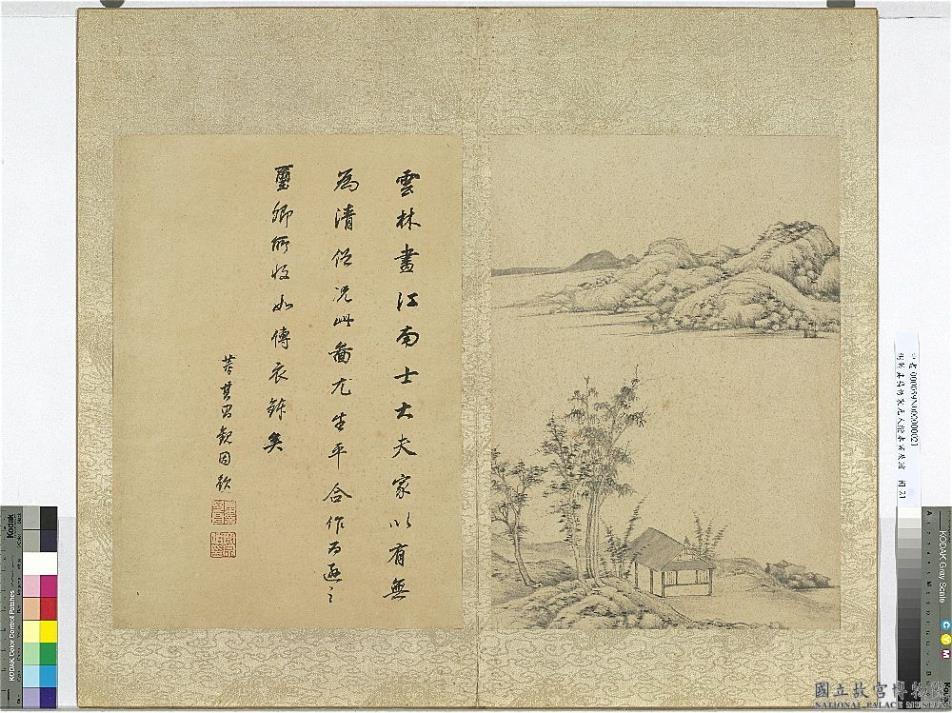 雲林畫江南士大夫家以有無
為清俗況此圖尤生平合作而遜之
璽卿所收如傳衣鉢矣
董其昌觀因題
國立故宮博物院
NATIONAL PALACE MUSEUM
KODAK Color Control Patches
Kodak
KODAK Gray Scale
C Y M